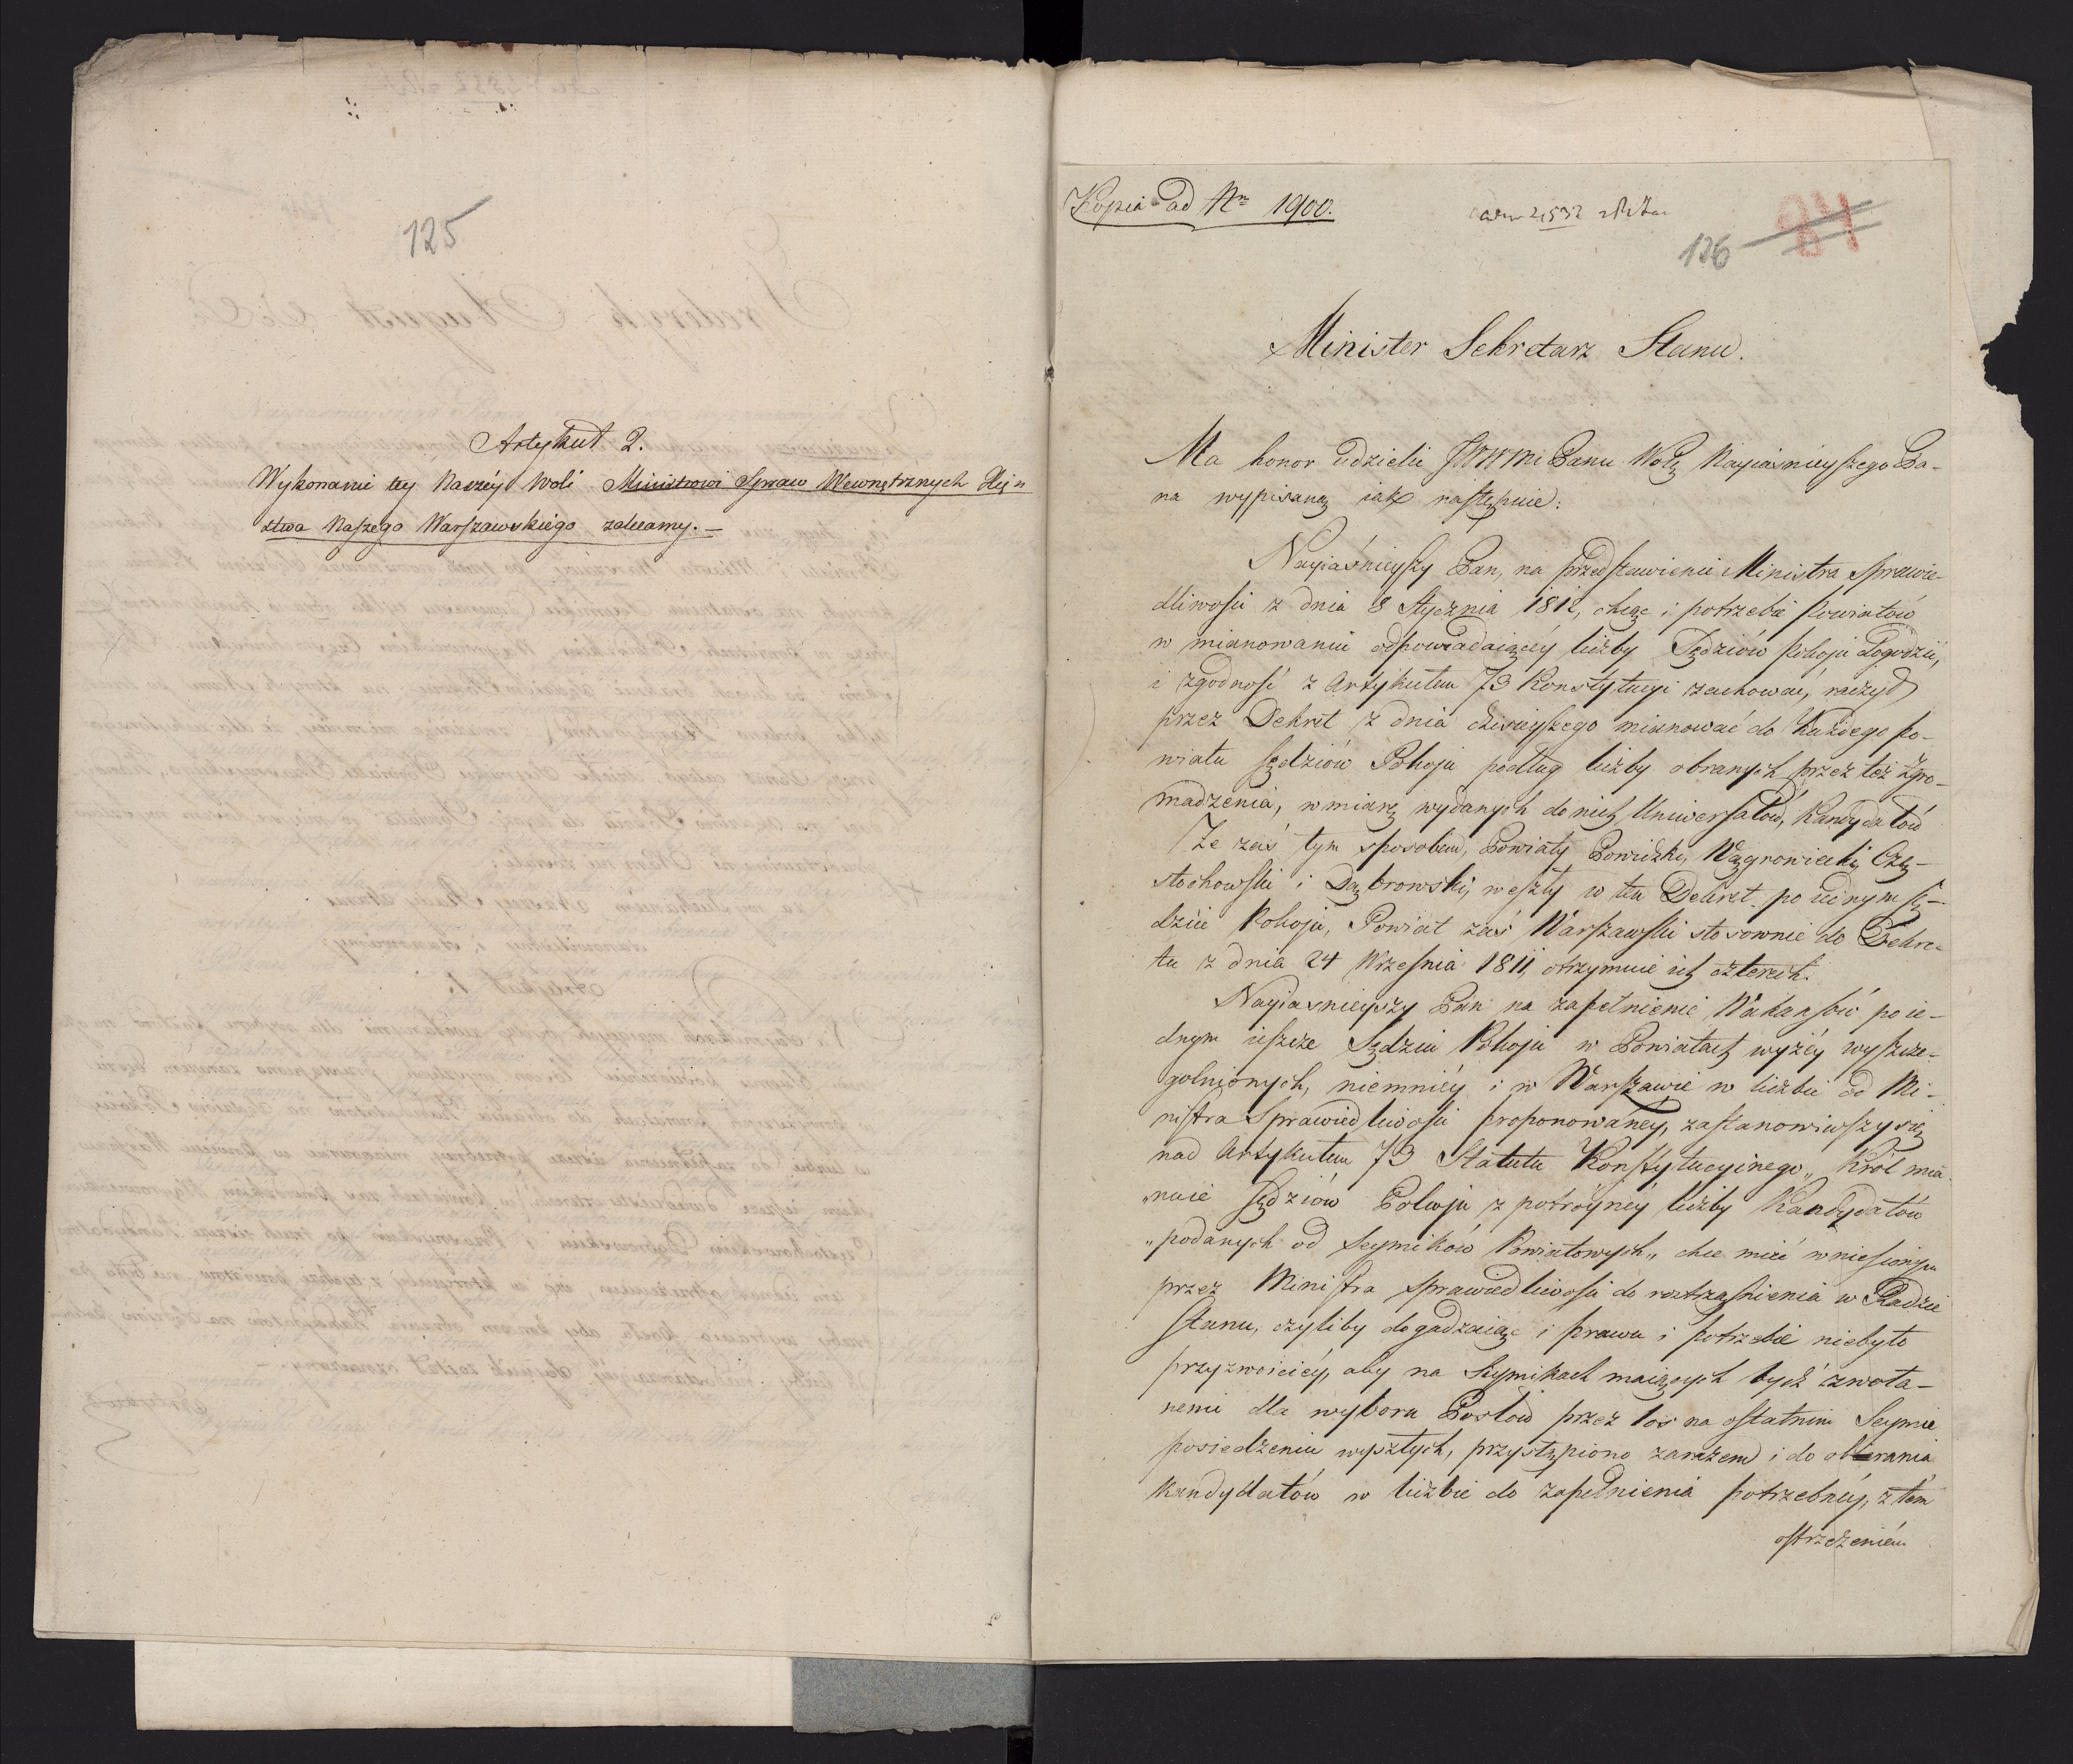 125
Artykuł 2.
Wykonanie tey Naszéy Woli Ministrowi Spraw Wewnętrznych Xię-
stwa Naszego Warszawskiego zalecamy.—
Kopia ad Nm 1900.
126
Minister Sekretarz Stanu.
Ma honor udzielić JWWMi Panu Wolę Nayiaśnieyszego Pa-
na wypisaną iak następuie:
Nayiaśnieyszy Pan, na przedstawienie Ministra Sprawie-
dliwości z dnia 8 Stycznia 1812, chcąc i potrzebie Powiatów
w mianowaniu odpowiadaiącéy liczby Sędziów Pokoju dogodzić,
i zgodność z Artykułem 73 Konstytucyi zachować, raczył
przez Dekret z dnia dzisieyszego mianować do każdego Po-
wiatu Sędziów Pokoju podług liczby obranych przez też Zgro-
madzenia, w miarę wydanych do nich Uniwersałów, Kandydatów
Że zaś tym sposobem, Powiaty Powidzki, Wągrowiecki, Czę-
stochowski i Dąbrowski, weszły w ten Dekret po iednym Sę-
dzie Pokoju, Powiat zaś Warszawski stosownie do Dekre-
tu z dnia 24 Września 1811, otrzymuie ich czterech.
Nayiaśnieyszy Pan na zapełnienie Wakansów po ie-
dnym ieszcze Sędziu Pokoju w Powiatach wyżéy wyszcze-
gólnionych, niemniéy i w Warszawie w liczbie od Mi-
nistra Sprawiedliwości proponowanéy, zastanowiwszy się
nad Artykułem 73 Statutu Konstytucyinego „Król mia-
„nuie Sędziów Pokoju z potróynéy liczby Kandydatów
„podanych od Seymików Powiatowych„ chce mieć wniesionym
przez Ministra Sprawiedliwości do roztrząśnienia w Radzie
Stanu, czyliby dogadzaiąc i prawu i potrzebie niebyło
przyzwoiciéy, aby na Seymikach maiących bydź zwoła-
nemi dla wyboru Posłów przez los na ostatnim Seymie
posiedzeniu wyszłych, przystąpiono zarazem i do obierania
Kandydatów w liczbie do zapełnienia potrzebnéy, z tém
ostrzeżeniém